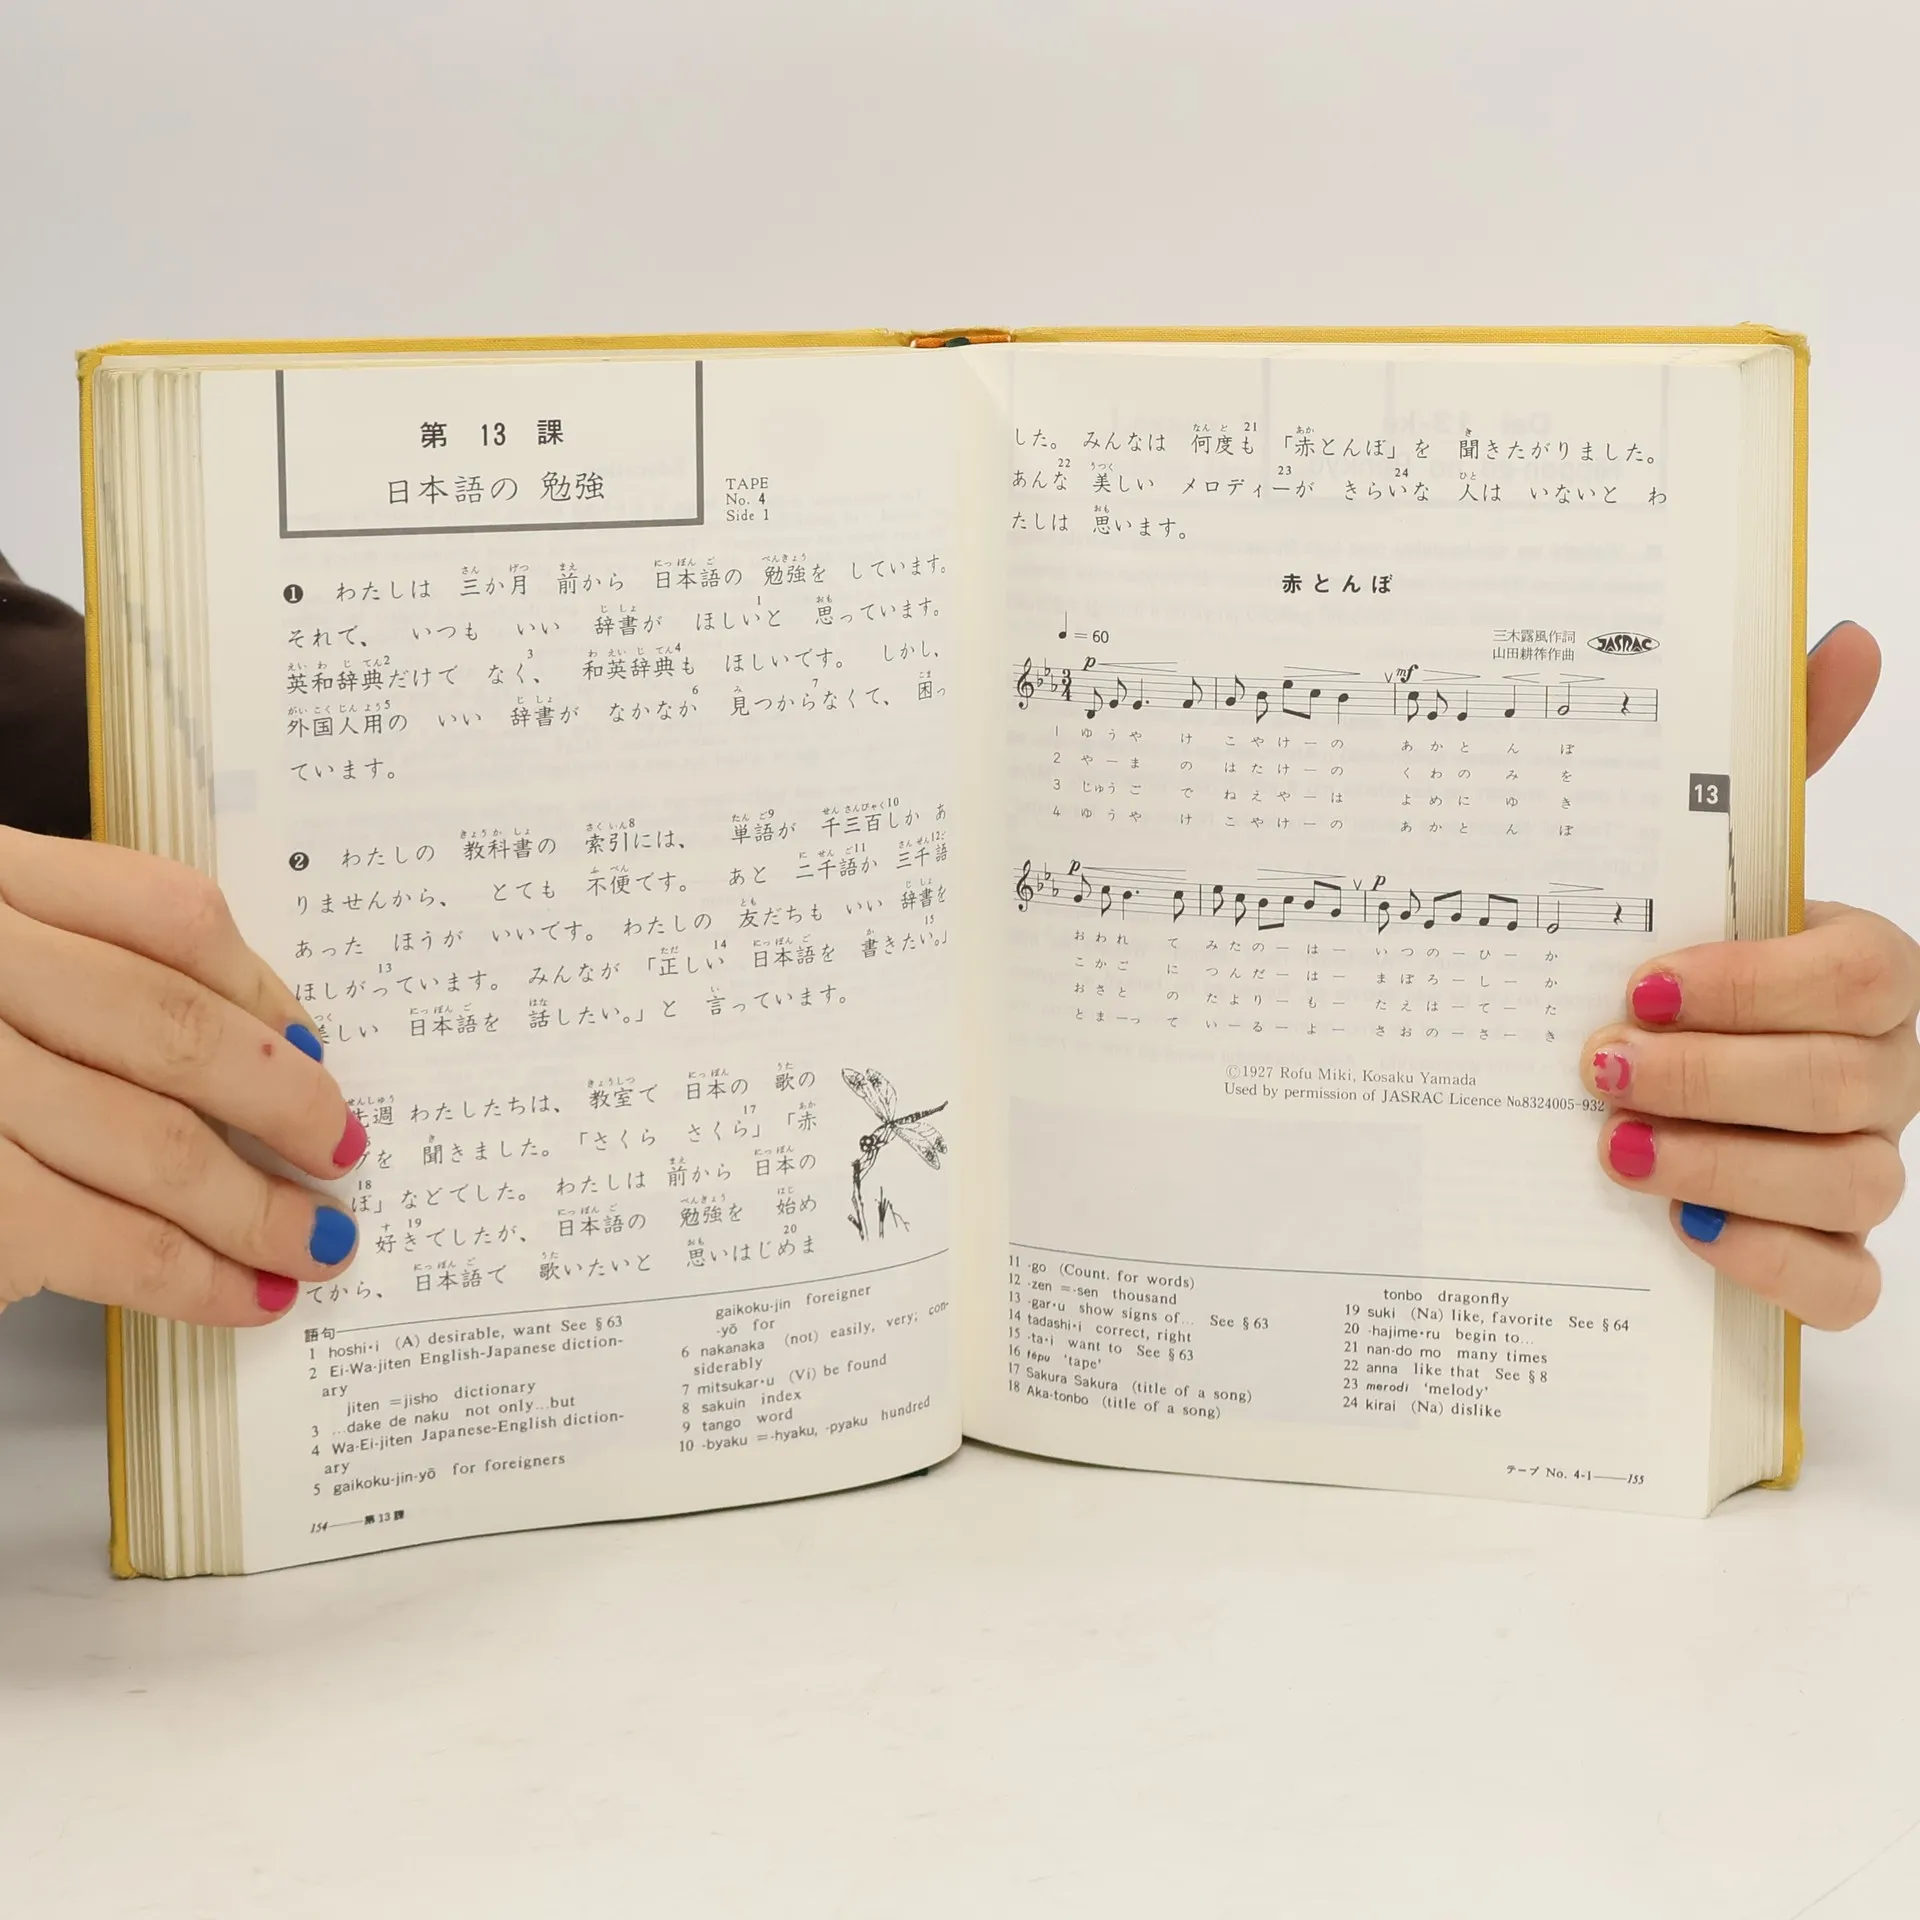 第 13 課
日本語の 勉強
TAPE
No. 4
Side 1
❶ わたしは 三か月 前から 日本語の 勉強を しています。
それで、 いつも いい 辞書が ほしいと 思っています。
英和辞典だけで なく、 和英辞典も ほしいです。 しかし、
外国人用の いい 辞書が なかなか 見つからなくて、 困っ
ています。
❷ わたしの 教科書の 索引には、 単語が 千三百しか あ
りませんから、 とても 不便です。 あと 二千語か 三千語
あった ほうが いいです。 わたしの 友だちも いい 辞書を
ほしがっています。 みんなが 「正しい 日本語を 書きたい。」
しい 日本語を 話したい。」と 言っています。
週 わたしたちは、 教室で 日本の 歌の
を 聞きました。 「さくら さくら」 「赤
ぼ」などでした。 わたしは 前から 日本の
好きでしたが、 日本語の 勉強を 始め
てから、 日本語で 歌いたいと 思いはじめま
語句
1 hoshi·i (A) desirable, want See §63
2 Ei-Wa-jiten English-Japanese diction-
ary
jiten =jisho dictionary
3 ...dake de naku not only...but
4 Wa-Ei-jiten Japanese-English diction-
ary
5 gaikoku-jin-yō for foreigners
gaikoku-jin foreigner
-yō for
6 nakanaka (not) easily, very; con-
siderably
7 mitsukar·u (Vi) be found
8 sakuin index
9 tango word
10 -byaku =-hyaku, -pyaku hundred
154——第13課
した。 みんなは 何度も 「赤とんぼ」を 聞きたがりました。
あんな 美しい メロディーが きらいな 人は いないと わ
たしは 思います。
赤とんぼ
♩= 60
三木露風作詞
山田耕筰作曲
JASRAC
p
mf
3
4
1 ゆ う や け こ や け ー の あ か と ん ぼ
2 や ー ま の は た け ー の く わ の み を
3 じゅう ご で ね え や ー は よ め に ゆ き
4 ゆ う や け こ や け ー の あ か と ん ぼ
13
p
p
お わ れ て み た の ー は ー い つ の ー ひ ー か
こ か ご に つ ん だ ー は ー ま ぼ ろ ー し ー か
お さ と の た よ り ー も ー た え は ー て ー た
と ま ーっ て い ー る ー よ ー さ お の ー さ ー き
©1927 Rofu Miki, Kosaku Yamada
Used by permission of JASRAC Licence №8324005-932
11 -go (Count. for words)
12 -zen =-sen thousand
13 -gar·u show signs of... See §63
14 tadashi·i correct, right
15 -ta·i want to See §63
16 tēpu 'tape'
17 Sakura Sakura (title of a song)
18 Aka-tonbo (title of a song)
tonbo dragonfly
19 suki (Na) like, favorite See §64
20 -hajime·ru begin to...
21 nan-do mo many times
22 anna like that See §8
23 merodi 'melody'
24 kirai (Na) dislike
テープ No. 4-1——155